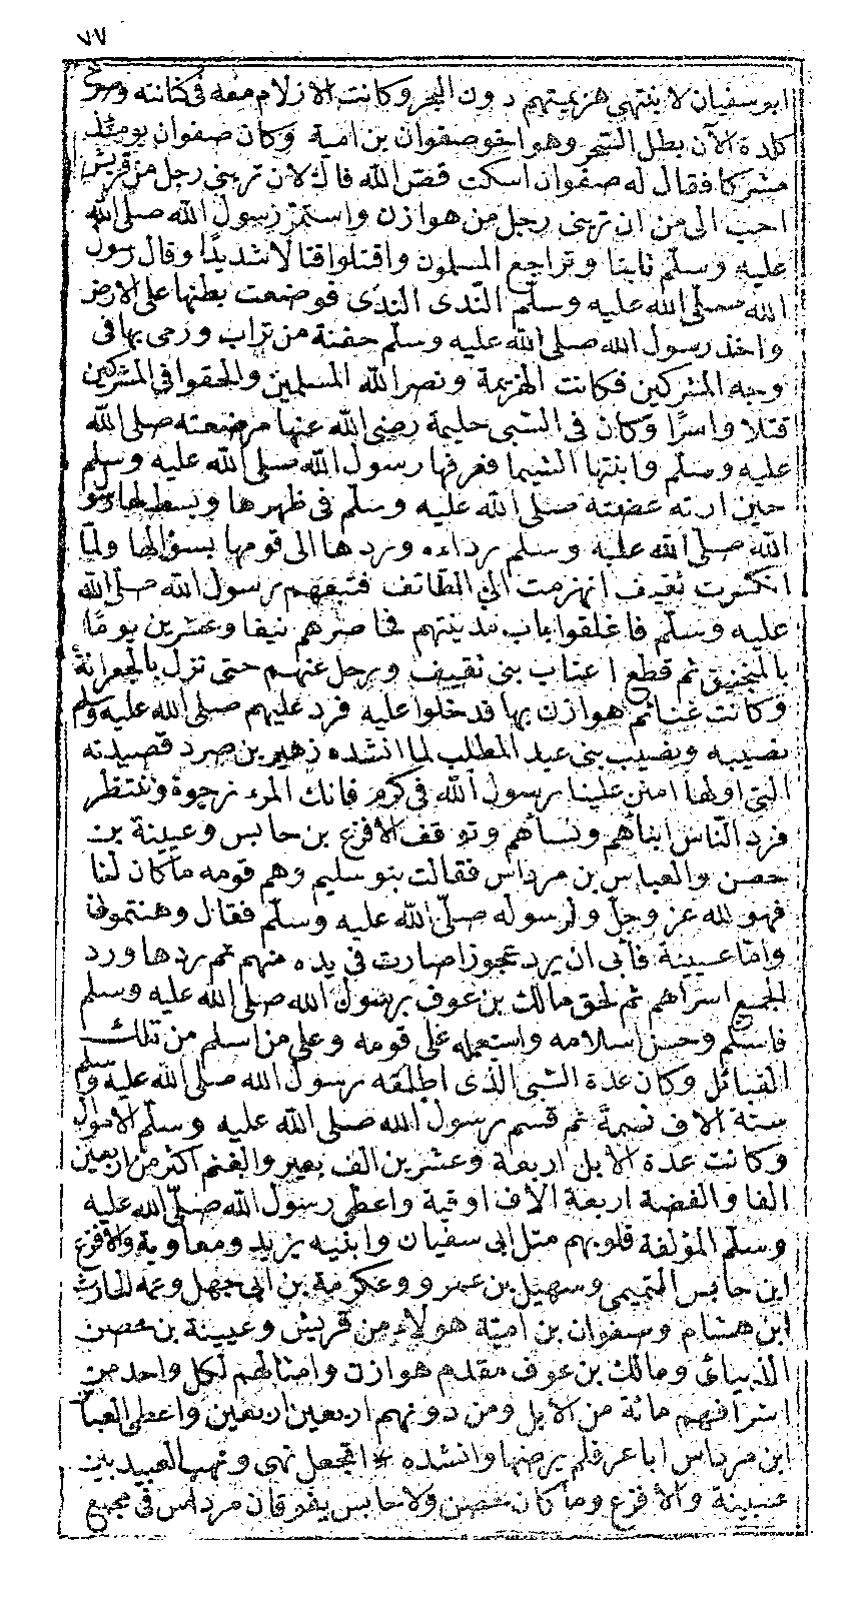 ٧٧
ابو سفيان لا ينتهى هزيمتهم دون البحر وكانت الازلام معه فى كنانته وصرخ
كلدة الآن بطل السحر وهو اخو صفوان بن امية وكان صفوان يومئذ
مشركا فقال له صفوان اسكت فض الله فاك لان تربنى رجل من قريش
احب الى من ان تربنى رجل من هوازن واستمر رسول الله صلى الله
عليه وسلم ثابتا وتراجع المسلمون واقتلوا قتالا شديدًا وقال رسول
الله صلى الله عليه وسلم الندى الندى فوضعت بطنها على الارض
واخذ رسول الله صلى الله عليه وسلم حفنة من تراب ورمى بها فى
وجه المشركين فكانت الهزيمة ونصر الله المسلمين والحقوا فى المشركين
قتلا واسرًا وكان فى السبى حليمة رضى الله عنها مرضعته صلى الله
عليه وسلم وابنتها الشيما فعرفها رسول الله صلى الله عليه وسلم
حين ارته عضته صلى الله عليه وسلم فى ظهرها وبسط لها رسو
الله صلى الله عليه وسلم رداءه وردها الى قومها بسؤالها ولما
انكسرت ثقيف انهزمت الى الطائف فتبعهم رسول الله صلى الله
عليه وسلم فاغلقوا باب مدينتهم فحاصرهم نيفا وعشرين يومًا
بالمنجنيق ثم قطع اعناب بنى ثقيف ورحل عنهم حتى نزل بالجعرانة
وكانت غنائم هوازن بها قد خلوا عليه فرد عليهم صلى الله عليه وسلم
نصيبه ونصيب بنى عبد المطلب لما انشده زهير بن صرد قصيدته
التى اولها امنن علينا رسول الله فى كرم فانك المرء نرجوة وننتظر
فرد الناس ابنأهم ونسأهم وتوقف الاقرع بن حابس وعيينة بن
حصن والعباس بن مرداس فقالت بنو سليم وهم قومه ماكان لنا
فهو لله عز وجل ولرسوله صلى الله عليه وسلم فقال وهنتمونى
واما عيينة فأبى ان يرد عجوزا صارت فى يده منهم ثم ردها ورد
الجميع اسراهم ثم لحق مالك بن عوف برسول الله صلى الله عليه وسلم
فاسلم وحسن اسلامه واستعمله على قومه وعلى من اسلم من تلك
القبائل وكان عدة السبى الذى اطلقه رسول الله صلى الله عليه وسلم
ستة الاف نسمة ثم قسم رسول الله صلى الله عليه وسلم الاموال
وكانت عدة الابل اربعة وعشرين الف بعير والغنم اكثر من اربعين
الفا والفضة اربعة الاف اوقية واعطى رسول الله صلى الله عليه
وسلم المؤلفة قلوبهم مثل ابى سفيان وابنيه يزيد ومعاوية والاقرع
ابن حابس التميمى وسهيل بن عمرو وعكرمة بن ابى جهل وعمه الحارث
ابن هشام وصفوان بن امية هولاء من قريش وعيينة بن حصن
الذبيانى ومالك بن عوف مقدم هوازن وامثالهم لكل واحد من
اشرافهم مائة من الابل ومن دونهم اربعين اربعين واعطى العبا
ابن مرداس اباعر فلم يرضها وانشده * اتجعل نهبى ونهب العبيد بين
عيينة والاقرع وماكان حصن ولا حابس يفوقان مرداس فى مجمع